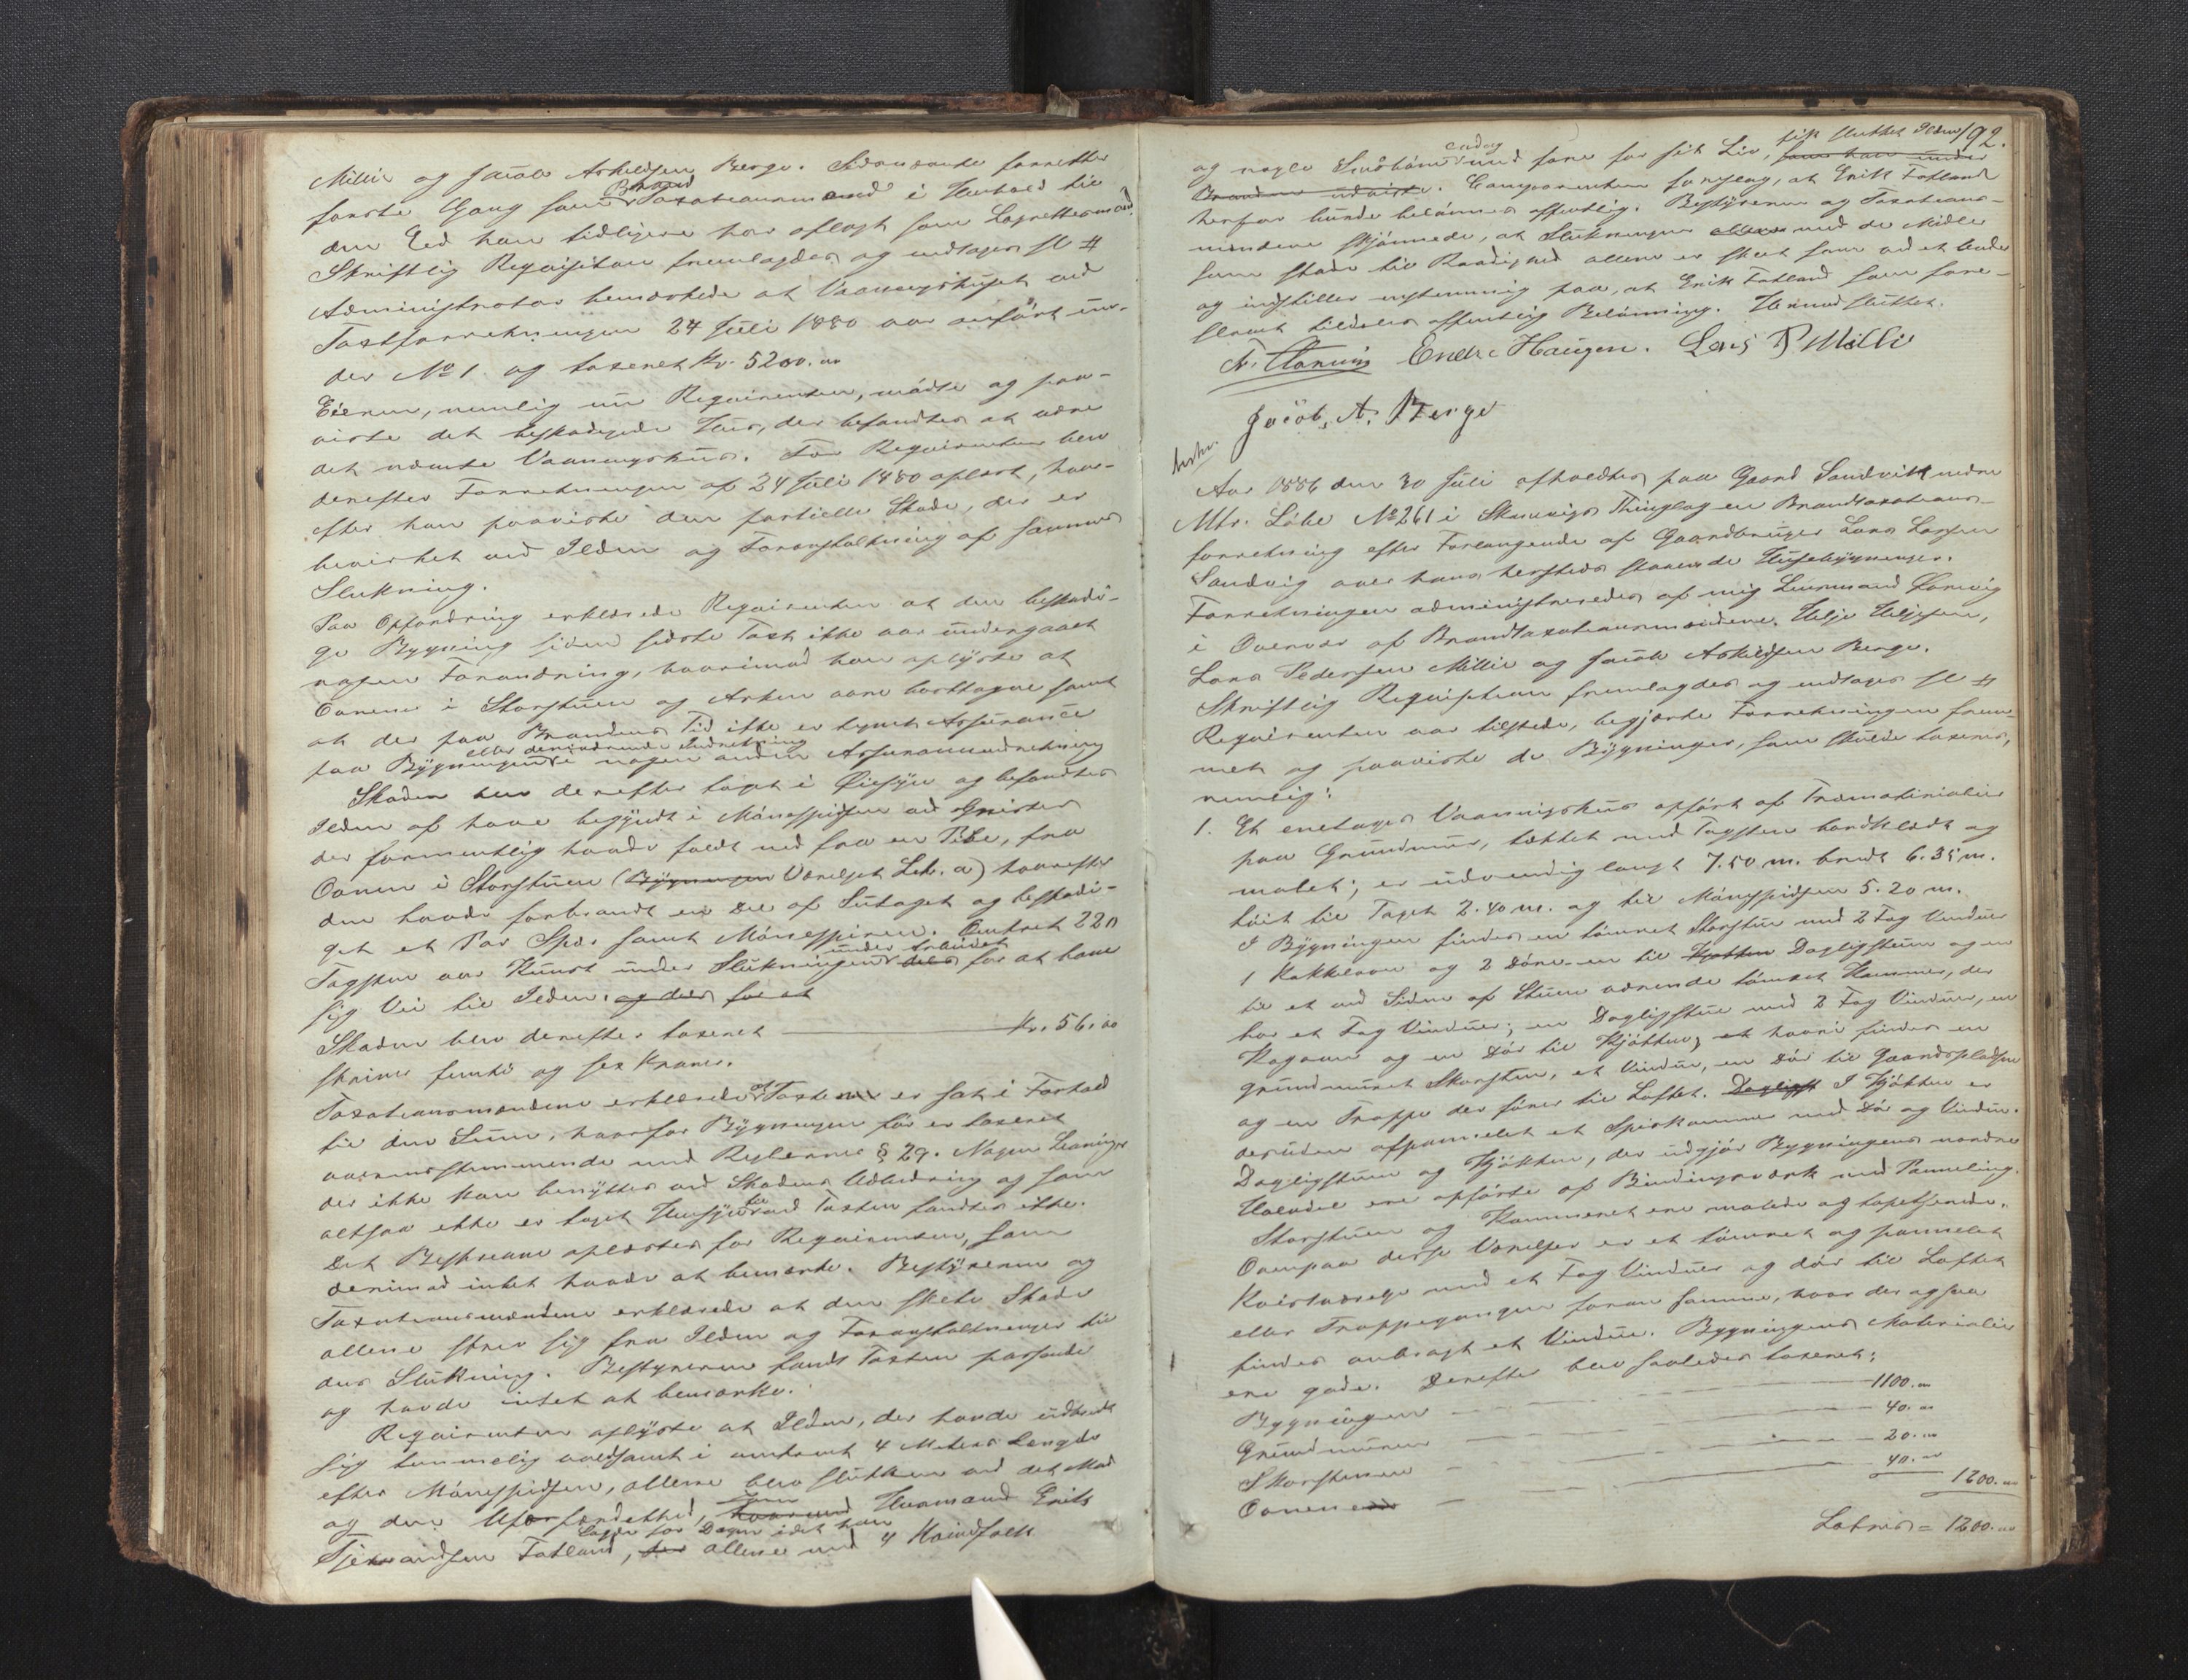 Millie og Jacob Askildsen Berge. Sidsnævnte forretter
første Gang som Brand Taxationsmand i Henhold til
den Eed han tidligere har aflagt som Lagrettesmand.
Skriftlig Reqvisition fremlagdes og indtages sl #
Administrator bemærkede at Vaaningshuset ved
Taxtforretningen 24 Juli 1880 var anført un-
der No 1 og taxeret Kr. 5200.00
Eieren, nemlig Reqvirenten, mødte og paa-
viste det beskadigede Huus, der befandtes at være
det nævnte Vaaningshuus. For Reqvirenten blev
derefter Forretningen af 24 Juli 1880 oplæst, hvor-
efter han paaviste den partielle Skade, der er
bevirket ved Ilden og Foranstaltning af sammes
Slukning.
Paa Opfordring erklærede Reqvirenten at den beskadi-
ge Bygning siden sidste Taxt ikke var undergaaet
nogen Forandring, hvorimod han oplyste at
Ovnene i Storstuen og Arken vare borttagne samt
at der paa Brandens Tid ikke er tegnet Assurance
eller derværende Indretning
paa Bygningen i nogen anden Assuranceindretning
Skaden blev derefter taget i Øiesyn og befandtes
Ilden af have begyndt i Mønespidsen ved Gnister
der formentlig havde faldt ned fra en Pibe, fra
Ovnen i Storstuen (Bygningen Værelset Lit. a) hvorefter
den havde forbrændt en Del af Sutaget og beskadi-
get et Par Spær samt Mønespiren. Omtrent 220
Tagsten var Knust under Slukningen under Arbeidet dels for at bane
sig Vei til Ilden. og dels for at
Skaden blev derefter taxeret Kr. 56.00
skriver femti og sex Kroner.
Taxationsmændene erklærede at Taxten er sat i Forhold
til den Sum, hvorfor Bygningen før er taxeret
overensstemmende med Reglernes § 29. Nogen Leaninger
der ikke kan benyttes ved Skadens Udbedring og som
altsaa ikke er taget Hensyn til ved Taxten fandtes ikke.
Det Beskrevne oplæstes for Reqvirenten, som
derimod intet havde at bemærke. Bestyreren og
Taxationsmændene erklærede at den skete Skade
allene skrev sig fra Ilden og Foranstaltninger til
dens Slukning. Bestyreren fandt Taxten passende
og havde intet at bemærke.
Reqvirenten oplyste at Ilden, der havde udbredt
sig temmelig voldsomt i omtrent 4 Meters Længde
efter Mønespidsen, allene blev slukken ved det Mod
og den Uforfærdethed, som hvormed Huusmand Erik
lagde for Dagen idet han
Tjerandsen Fatland, der allene med 4 Kvindfolk
192.
og nogle Smaabørn endog med fare for sit Liv, fik slukket Ilden som han under
Branden udviste. Comparenten foreslog, at Erik Fatland
herfor burde belønnes offentlig. Bestyreren og Taxations-
mændene skjønnede, at Slukningen allene med de Midler
som stode til Raadighed allene er skeet som ved et Under
og indstiller enstemmig paa, at Erik Fatland som fore-
slaaet tildeles offentlig Belønning. Hermed sluttet.
Endre Haugen. Lars P Millie
Jacob, A. Berge
beskr.
Aar 1886 den 30 Juli afholdtes paa Gaard Sandvik nedre
Mtr. Løbe No 261 i Skaanevigs Thinglag en Brandtaxations-
forretning efter Forlangende af Gaardbruger Lars Larsen
Sandvig over hans hersteds staaende Husebygninger.
Forretningen administreredes af mig Lensmand
i Overvær af Brandtaxationsmændene, Helje Heljesen,
Lars Pedersen Millie og Jacob Askildsen Berge.
Skriftlig Reqvisition fremlagdes og indtages sl #
Reqvirenten var tilstede, begjærte Forretningen frem-
met og paaviste de Bygninger, som skulde taxeres,
nemlig:
1. Et enetages Vaaningshuus opført af Træmaterialier
paa Grundmur, tækket med Tagsten bordklædt og
malet; er udvendig langt 7.50 m. bredt 6.35 m.
høit til Taget 2.40 m. og til Mønespidsen 5.20 m.
I Bygningen findes en tømret Storstue med 2 Fag Vinduer
1 Kakkelovn og 2 Døre en til Kjøkken Dagligstuen og en
til et ved Siden af Stuen værende tømret Kammer, der
har et Fag Vinduer; en Dagligstue med 2 Fag Vinduer, en
Kogeovn og en Dør til Kjøkken; et hvori findes en
grundmuret Skorsten, et Vindue, en Dør til Gaardspladsen
og en Trappe der fører til Loftet. Dagligst I Kjøkken er
desuden afpannelet et Spiskammer med Dør og Vindue.
Dagligstuen og Kjøkken, der udgjør Bygningens nordre
Halvdel ere opførte af Bindingsværk med Panneling.
Storstuen og Kammeret ere malede og tapetserede.
Ovenpaa disse Værelser er et tømret og pannelet
Kvistværelse med et Fag Vinduer og dør til Loftet
eller Trappegangen foran samme, hvor der ogsaa
findes anbragt et Vindue. Bygningens Materialier
ere gode. Derefter blev saaledes taxeret:
Bygningen 1100.00
Grundmuren 40.00
Skorstenen 20.00
Ovnene 40.00
1200.00
Lateris = 1200.00